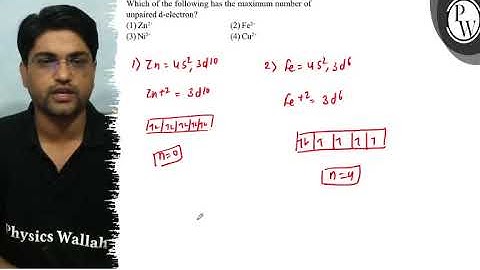 Which of the following has the maximum number of
unpaired d-electron?
(1) Zn²⁺ (2) Fe²⁺
(3) Ni³⁺ (4) Cu²⁺
1) Zn = 4s², 3d10 2) Fe = 4s², 3d6
Zn+2 = 3d10 Fe+2 = 3d6
n=0
n=4
Physics Wallah
P
W